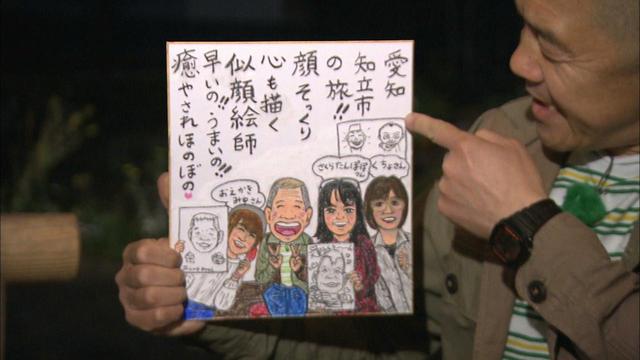 愛知
知立市
の旅!!
顔そっくり
心も描く
似顔絵師
早いの!!うまいの!!
癒やされほのぼの
さくらたんぽぽさん
くちょさん
おえかきみゆさん